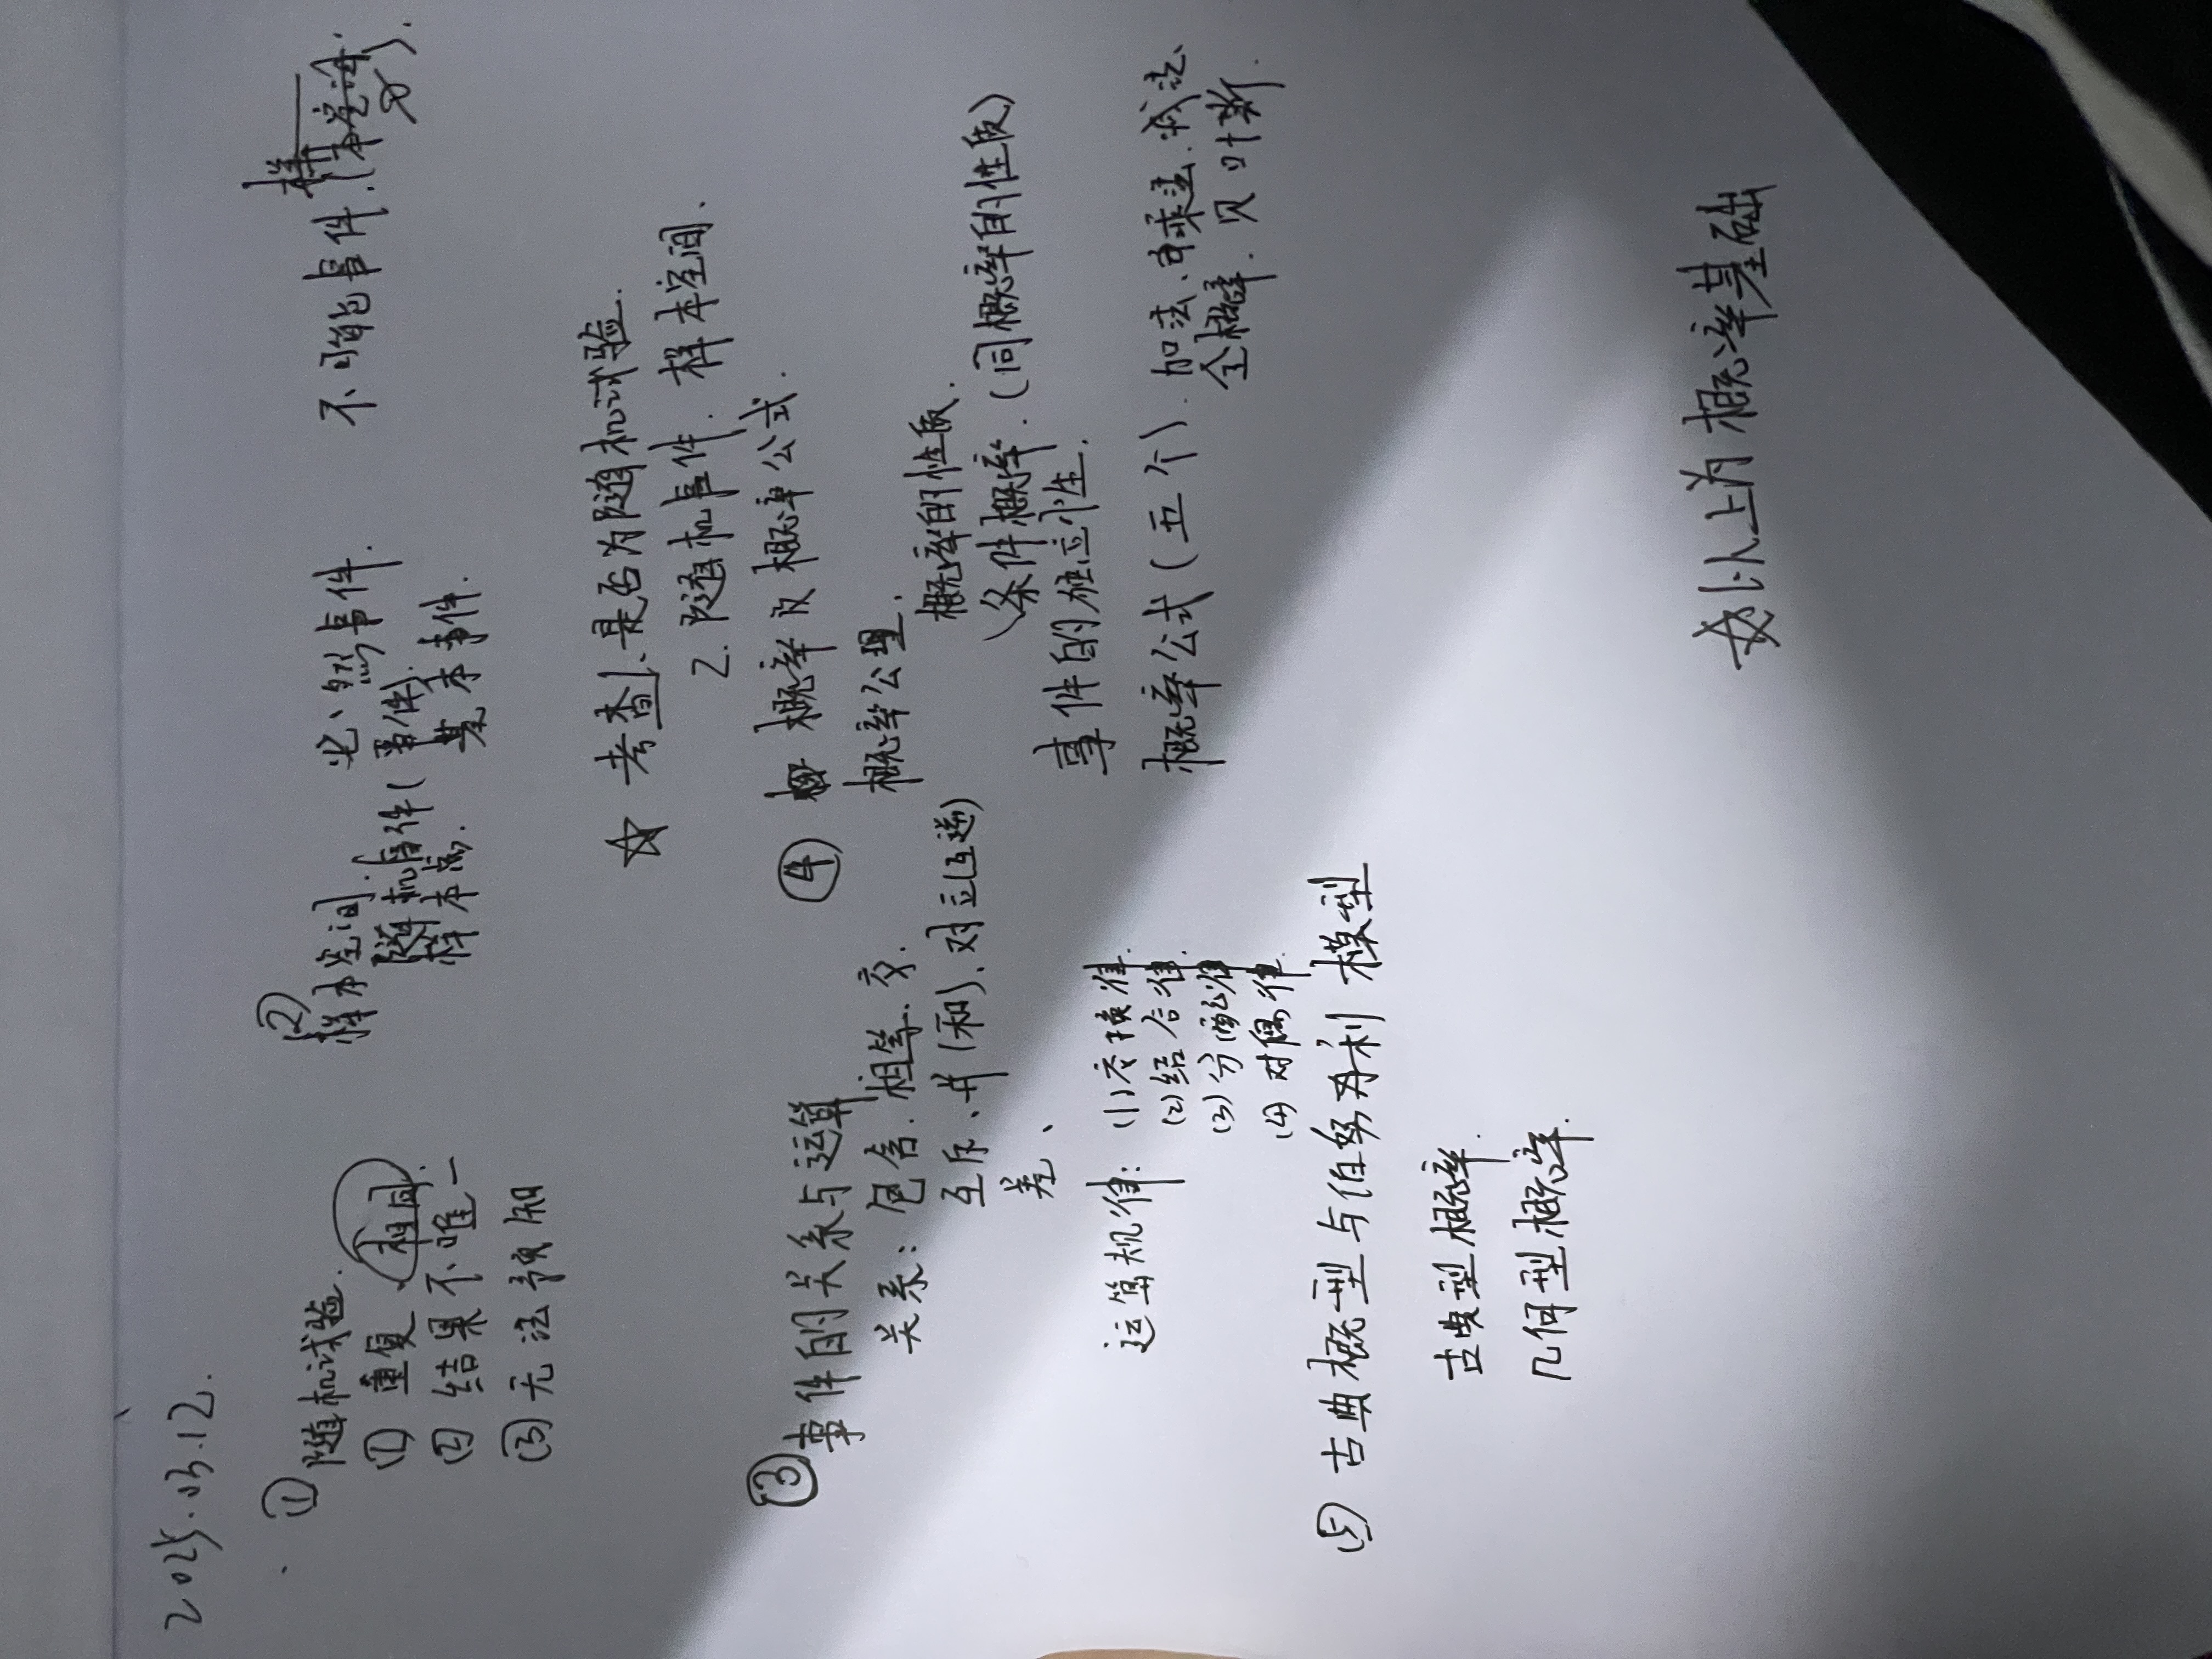 2025.03.12.
①
随机试验.
① 重复、相同.
② 结果不唯一
③ 无法预知
②
样本空间. 必然事件. 不可能事件.(样本空间 ∅).
随机事件(事件).
样本点. 基本事件.
☆ 考查1、是否为随机试验.
2. 随机事件. 样本空间.
③
事件的关系与运算.
关系: 包含. 相等. 交.
互斥、并(和)、对立(互逆)
差、
运算规律: (1)交换律.
(2)结合律.
(3)分配律
(4)对偶律.
④ 概率及概率公式.
概率公理.
概率的性质.
条件概率. (同概率的性质)
事件的独立性.
概率公式(五个). 加法、乘法、减法、
全概率. 贝叶斯.
⑤ 古典概型与伯努利 模型
古典型概率.
几何型概率.
☆以上为概率基础